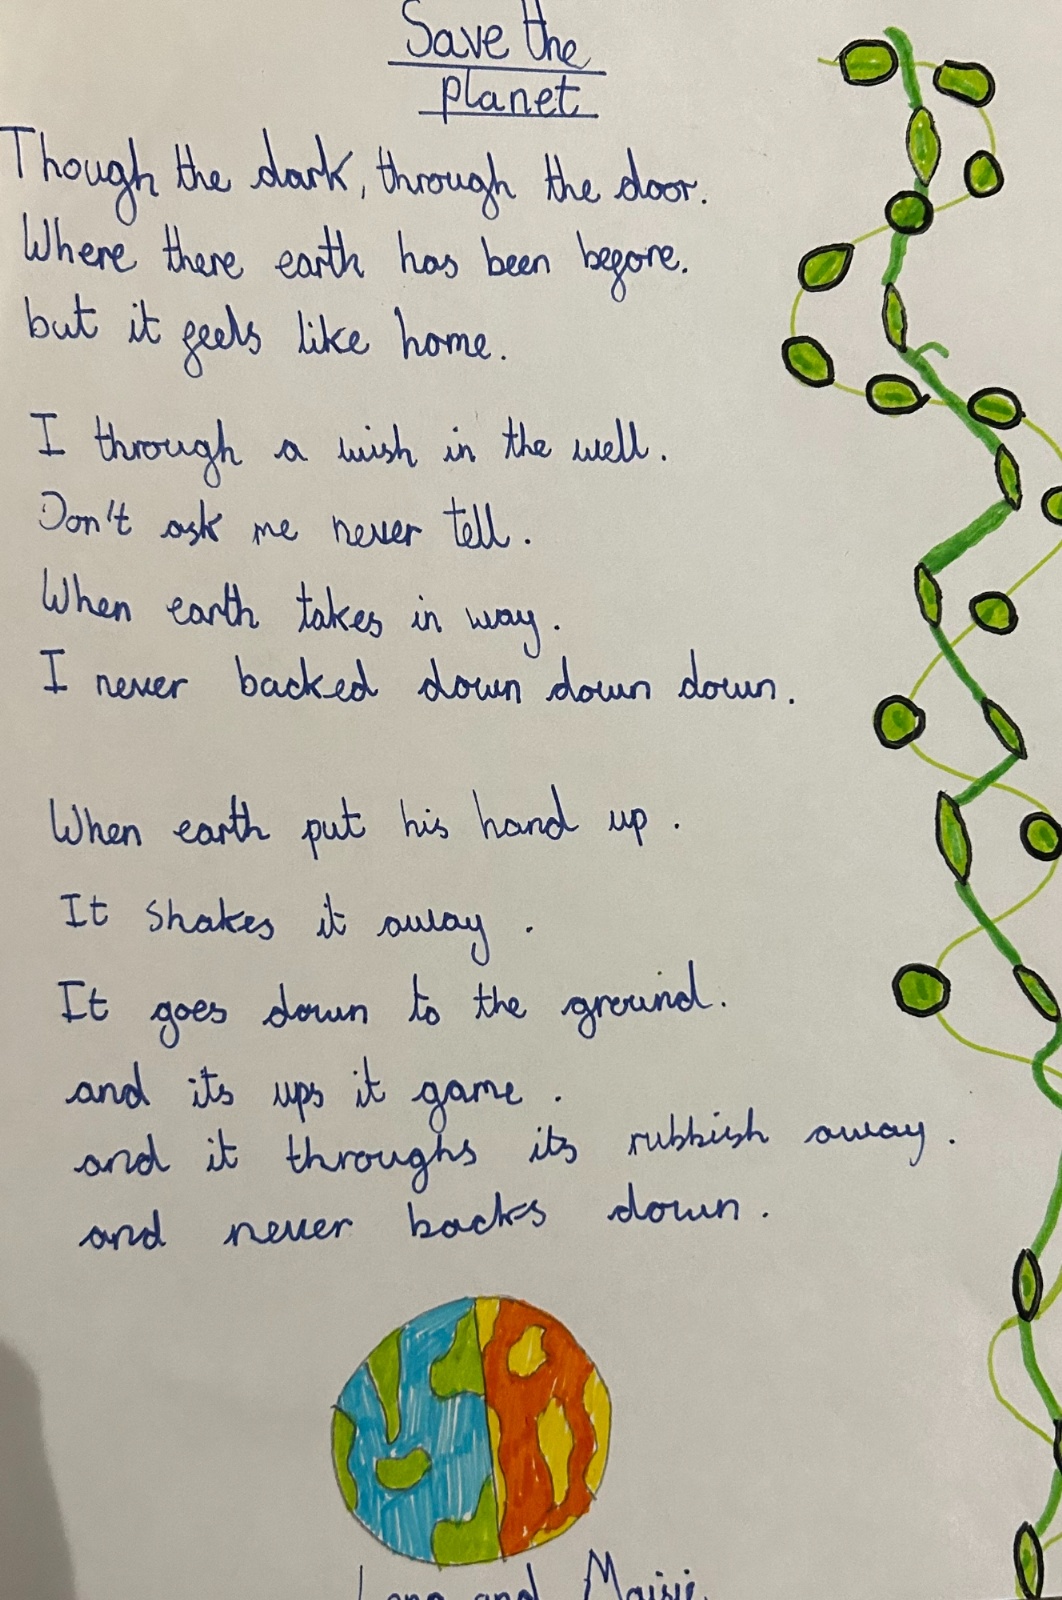 Save the
planet
Though the dark, through the door.
Where there earth has been before.
but it feels like home.
I through a wish in the well.
Don't ask me never tell.
When earth takes in way.
I never backed down down down.
When earth put his hand up.
It shakes it away.
It goes down to the ground.
and its ups it game.
and it throughs its rubbish away.
and never backs down.
and Maisie.